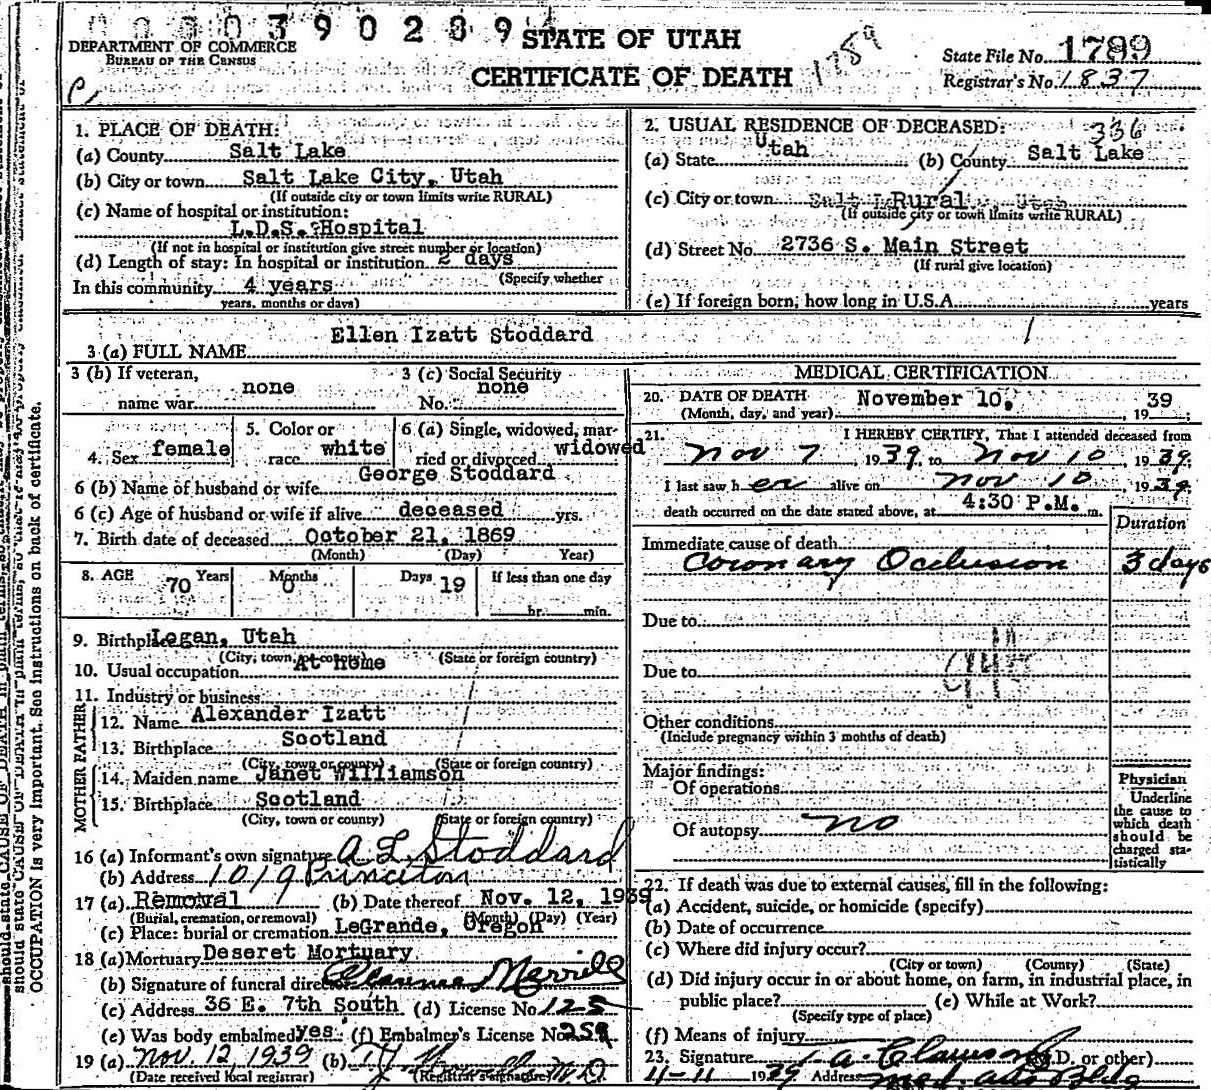 0 0 0 0 3 9 0 2 8 9
DEPARTMENT OF COMMERCE
BUREAU OF THE CENSUS
STATE OF UTAH
CERTIFICATE OF DEATH
1789
State File No. 1789
Registrar's No. 1837
1. PLACE OF DEATH:
(a) County Salt Lake
(b) City or town Salt Lake City, Utah
(If outside city or town limits write RURAL)
(c) Name of hospital or institution:
L.D.S. Hospital
(If not in hospital or institution give street number or location)
(d) Length of stay: In hospital or institution 2 days
(Specify whether
In this community 4 years
years, months or days)
2. USUAL RESIDENCE OF DECEASED: 336
(a) State Utah (b) County Salt Lake
(c) City or town Rural
(If outside city or town limits write RURAL)
(d) Street No. 2736 S. Main Street
(If rural give location)
(e) If foreign born, how long in U.S.A. years
Ellen Izatt Stoddard
3 (a) FULL NAME
3 (b) If veteran, name war none
3 (c) Social Security No. none
4. Sex female
5. Color or race white
6 (a) Single, widowed, married or divorced widowed
George Stoddard
6 (b) Name of husband or wife
6 (c) Age of husband or wife if alive deceased yrs.
7. Birth date of deceased October 21, 1869
(Month) (Day) Year)
8. AGE 70 Years 0 Months Days 19 If less than one day
hr. min.
9. Birthplace Logan, Utah
(City, town, or county) (State or foreign country)
10. Usual occupation At home
11. Industry or business
FATHER
12. Name Alexander Izatt
13. Birthplace Scotland
(City, town or county) (State or foreign country)
MOTHER
14. Maiden name Janet Williamson
15. Birthplace Scotland
(City, town or county) (State or foreign country)
16 (a) Informant's own signature A L Stoddard
(b) Address 1019 Princeton
17 (a) Removal (b) Date thereof Nov. 12, 1939
(Burial, cremation, or removal) (Month) (Day) (Year)
(c) Place: burial or cremation LeGrande, Oregon
18 (a) Mortuary Deseret Mortuary
(b) Signature of funeral director Merrill
(c) Address 36 E. 7th South (d) License No. 125
(e) Was body embalmed yes (f) Embalmer's License No. 259
19 (a) Nov. 12 1939 (b) M.D.
(Date received local registrar) (Registrar's signature)
MEDICAL CERTIFICATION
20. DATE OF DEATH November 10, 1939
(Month, day, and year)
21. I HEREBY CERTIFY, That I attended deceased from
Nov 7, 1939, to Nov 10, 1939.
I last saw her alive on Nov 10, 1939
death occurred on the date stated above, at 4:30 P.M. m.
Duration
Immediate cause of death
Coronary Occlusion 3 days
Due to
Due to
Other conditions
(Include pregnancy within 3 months of death)
Major findings:
Of operations
Of autopsy no
Physician
Underline
the cause to
which death
should be
charged sta-
tistically
22. If death was due to external causes, fill in the following:
(a) Accident, suicide, or homicide (specify)
(b) Date of occurrence
(c) Where did injury occur?
(City or town) (County) (State)
(d) Did injury occur in or about home, on farm, in industrial place, in
public place? (e) While at Work?
(Specify type of place)
(f) Means of injury
23. Signature T. A. Clawson (M.D. or other)
11-11 1939 Address Med. Arts Bldg
should state CAUSE OF DEATH in plain terms, so that it may be properly
OCCUPATION is very important. See instructions on back of certificate.